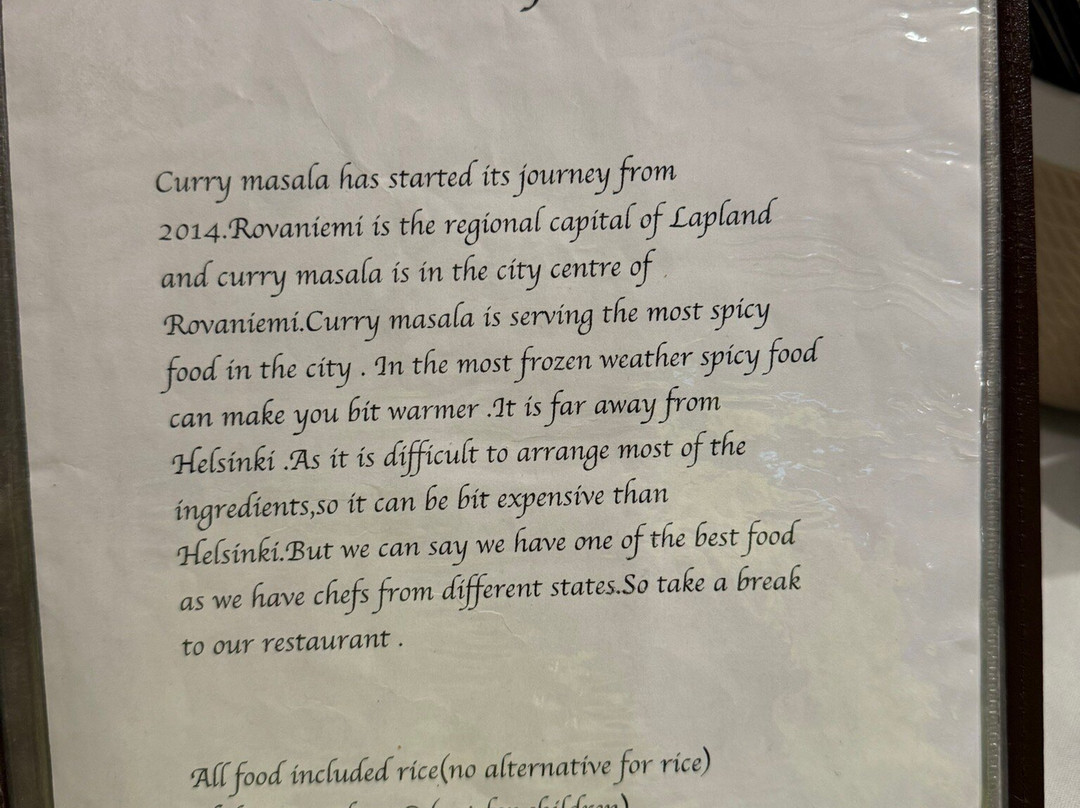 Curry masala has started its journey from
2014.Rovaniemi is the regional capital of Lapland
and curry masala is in the city centre of
Rovaniemi.Curry masala is serving the most spicy
food in the city . In the most frozen weather spicy food
can make you bit warmer .It is far away from
Helsinki .As it is difficult to arrange most of the
ingredients,so it can be bit expensive than
Helsinki.But we can say we have one of the best food
as we have chefs from different states.So take a break
to our restaurant .
All food included rice(no alternative for rice)
children)